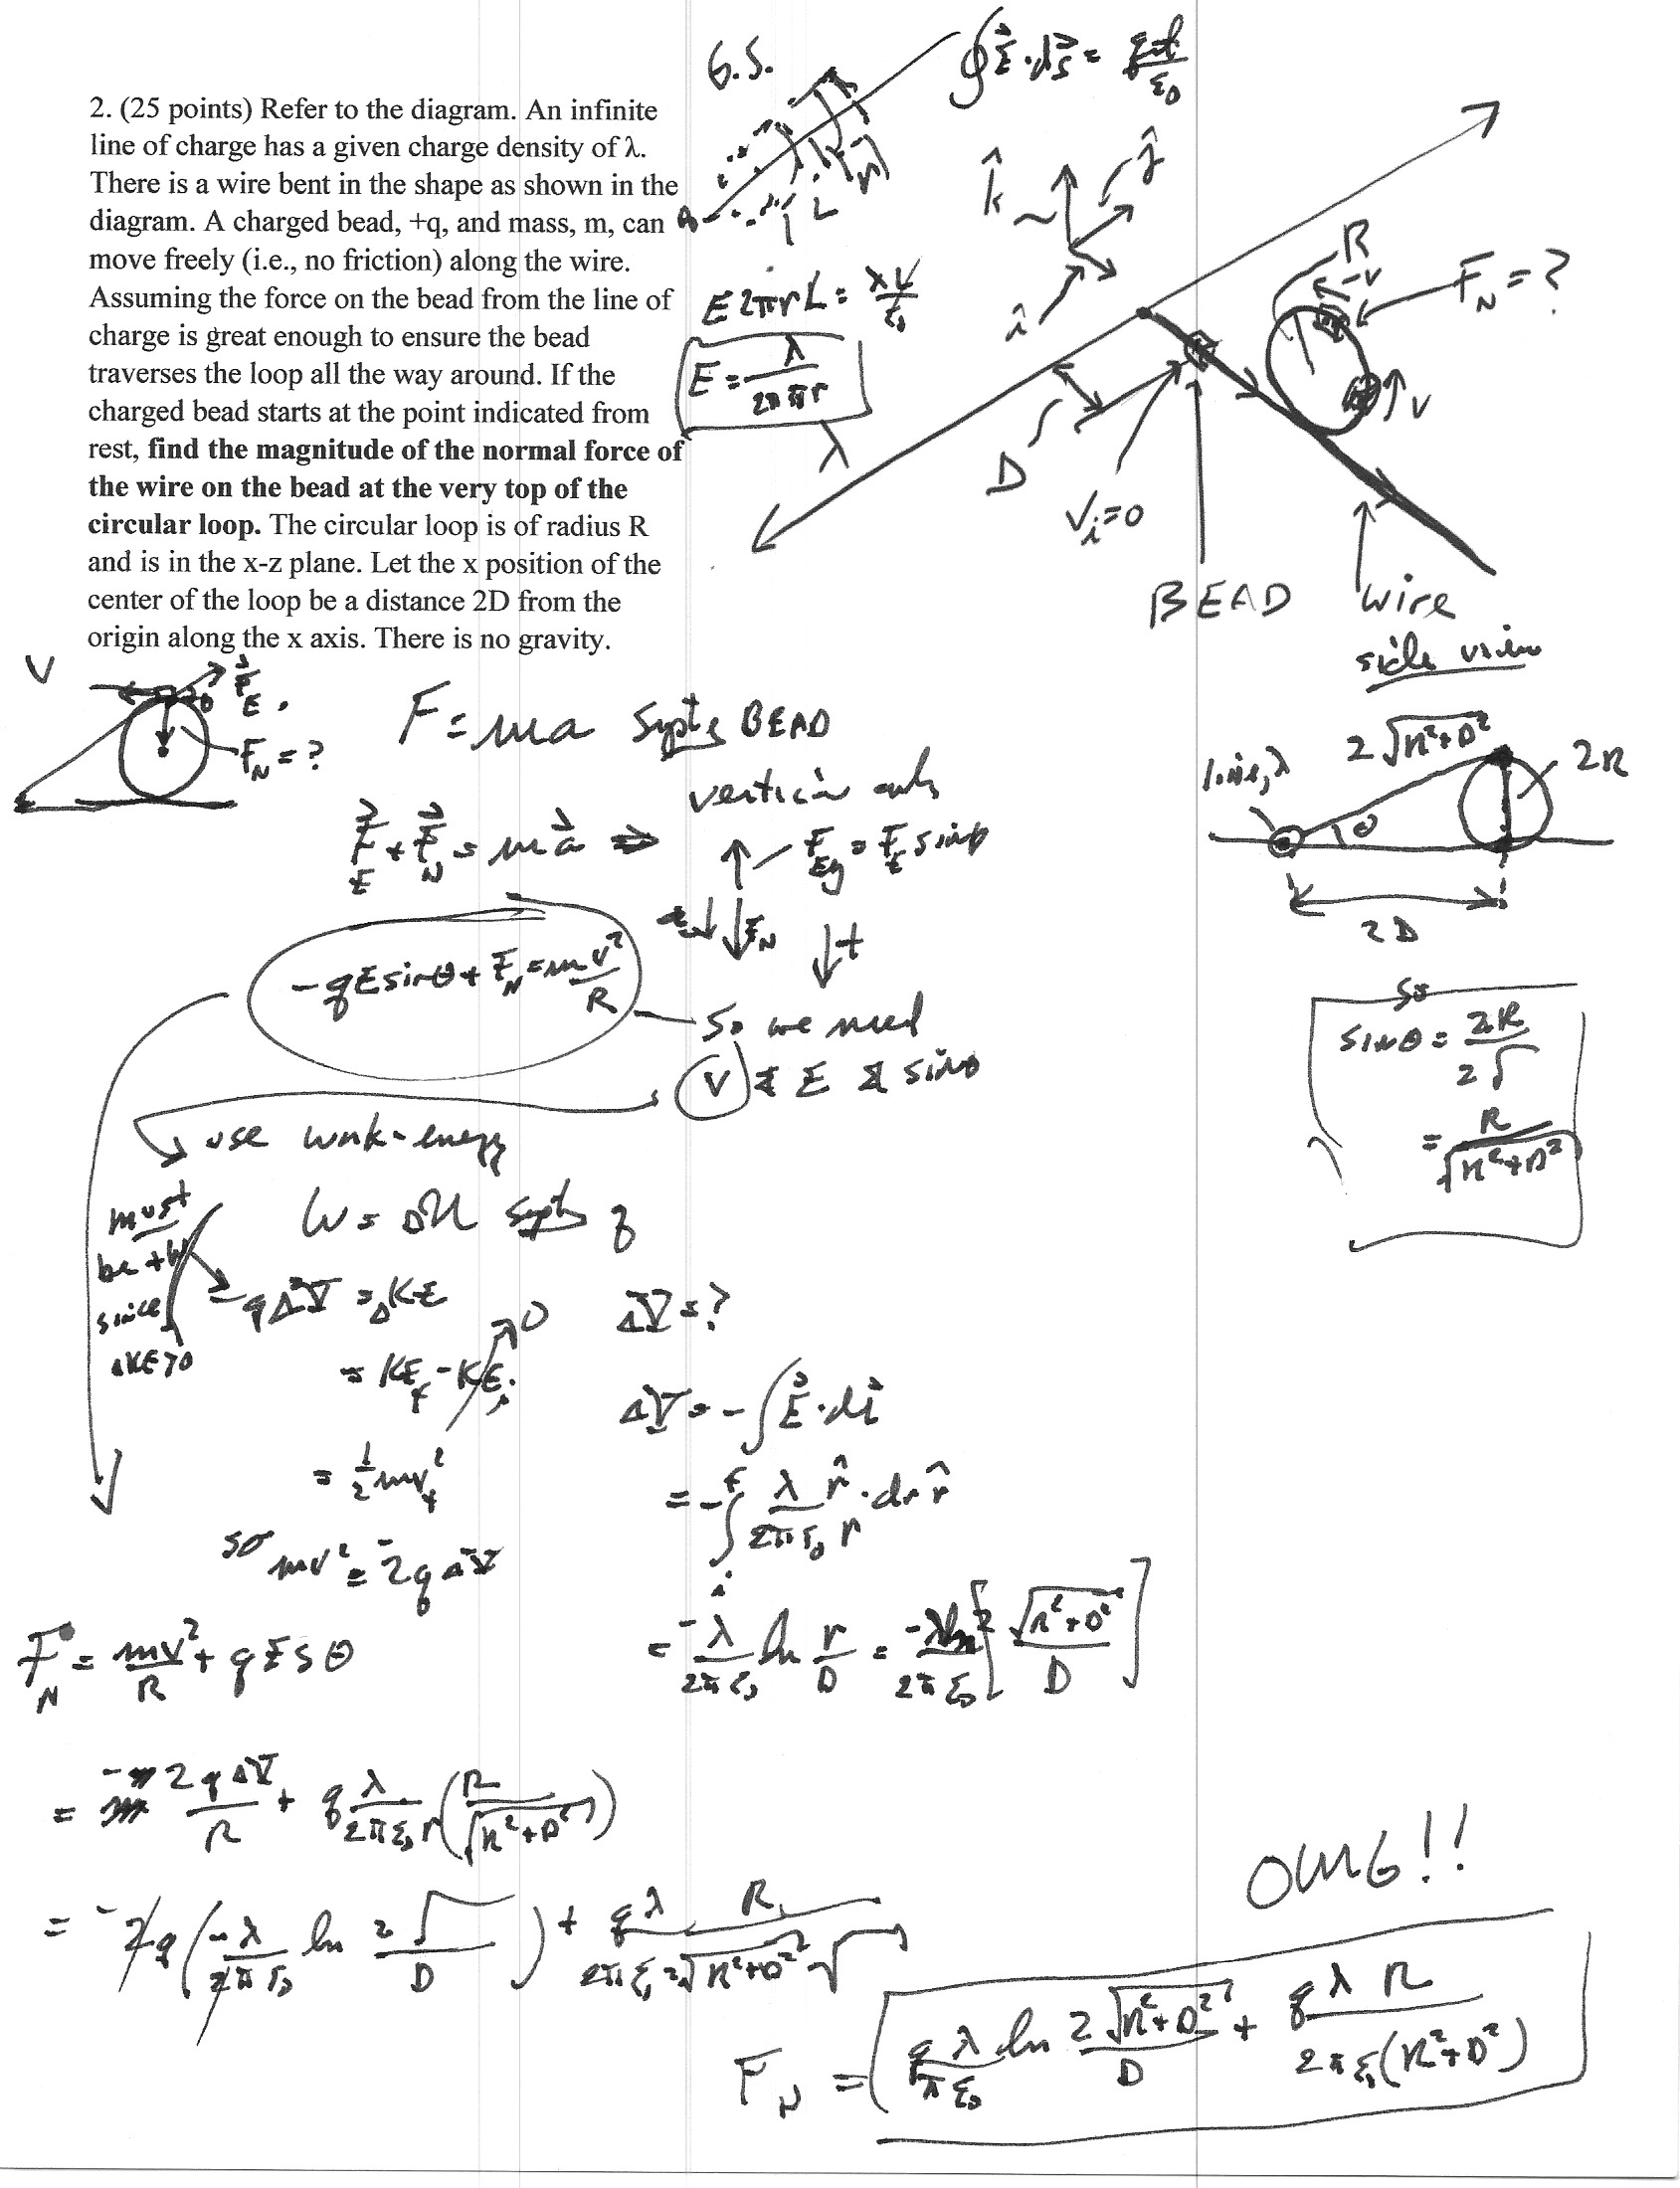 2. (25 points) Refer to the diagram. An infinite
line of charge has a given charge density of λ.
There is a wire bent in the shape as shown in the
diagram. A charged bead, +q, and mass, m, can
move freely (i.e., no friction) along the wire.
Assuming the force on the bead from the line of
charge is great enough to ensure the bead
traverses the loop all the way around. If the
charged bead starts at the point indicated from
rest, find the magnitude of the normal force of
the wire on the bead at the very top of the
circular loop. The circular loop is of radius R
and is in the x-z plane. Let the x position of the
center of the loop be a distance 2D from the
origin along the x axis. There is no gravity.
G.S.
∮E⃗·ds⃗ = 
L
E 2πrL = λL/ε₀
E = λ/2πr
k̂
ĵ
î
R
-v
F_N = ?
v
λ
D
V_i=0
BEAD
wire
side view
line, λ
2√(R²+D²)
2R
θ
2D
so
sinθ = 2R/2√
= R/√(R²+D²)
v
F⃗_E
F_N = ?
F = ma BEAD
vertical only
F⃗_E + F⃗_N = ma⃗ ⇒
F_Ey = F_E sinθ
F_N
+
-qE sinθ + F_N = m v²/R
so we need
v & E & sinθ
use work-energy
must
be +W
since
ΔKE>0
q
-qΔV = ΔKE
ΔV = ?
= KE_f - KE_i 0
ΔV = -∫E⃗·dl⃗
= ½mv_f²
= -∫_i^f λ/2πε₀ r̂/r · dr r̂
so mv² = -2qΔV
= -λ/2πε₀ ln r/D = -λ/2πε₀ ln [2√(R²+D²)/D]
F_N = mv²/R + qEsθ
= -2qΔV/R + q λ/2πε₀r (R/√(R²+D²))
= -2q(-λ/2πε₀ ln 2√/D) + qλ R/2πε₀ 2√(R²+D²) √
OMG!!
F_N = qλ/πε₀ ln 2√(R²+D²)/D + qλR/2πε₀(R²+D²)